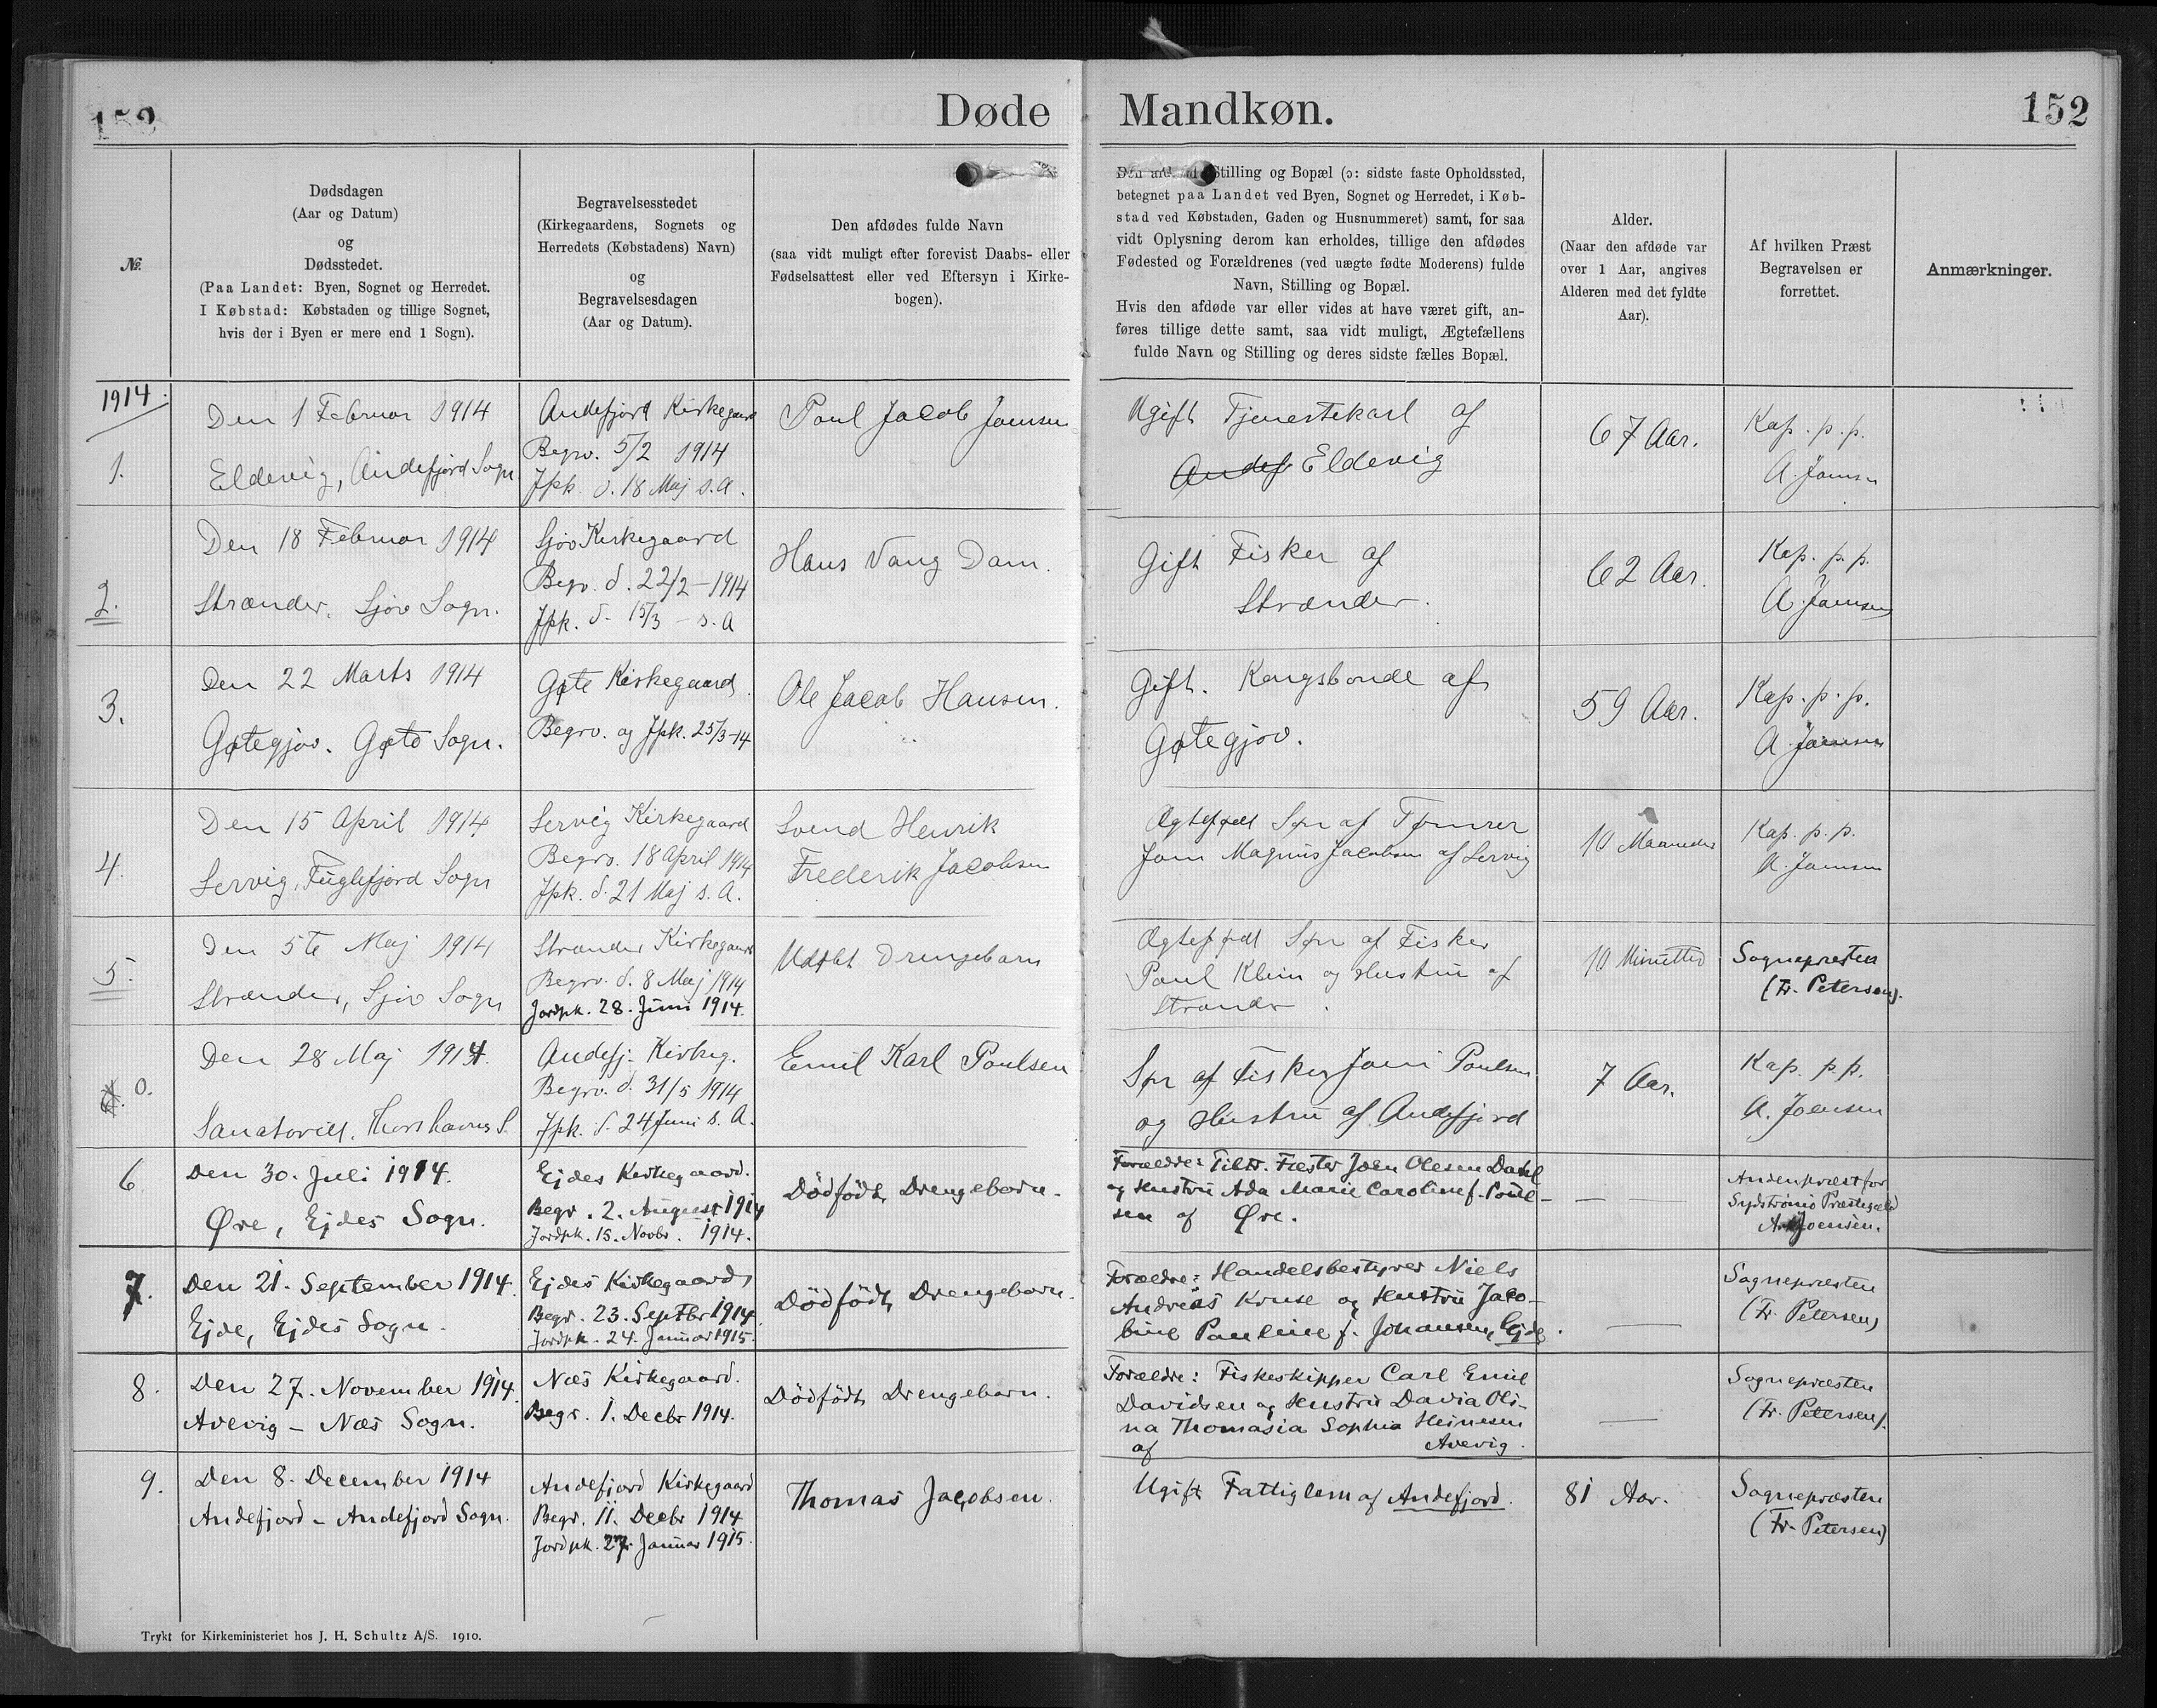 152
Døde
Mandkøn.
152
№.
Dødsdagen
(Aar og Datum)
og
Dødsstedet.
(Paa Landet: Byen, Sognet og Herredet.
I Købstad: Købstaden og tillige Sognet,
hvis der i Byen er mere end 1 Sogn).
Begravelsesstedet
(Kirkegaardens, Sognets og
Herredets (Købstadens) Navn)
og
Begravelsesdagen
(Aar og Datum).
Den afdødes fulde Navn
(saa vidt muligt efter forevist Daabs- eller
Fødselsattest eller ved Eftersyn i Kirke-
bogen).
Stilling og Bopæl (ɔ: sidste faste Opholdssted,
betegnet paa Landet ved Byen, Sognet og Herredet, i Køb-
stad ved Købstaden, Gaden og Husnummeret) samt, for saa
vidt Oplysning derom kan erholdes, tillige den afdødes
Fødested og Forældrenes (ved uægte fødte Moderens) fulde
Navn, Stilling og Bopæl.
Hvis den afdøde var eller vides at have været gift, an-
føres tillige dette samt, saa vidt muligt, Ægtefællens
fulde Navn og Stilling og deres sidste fælles Bopæl.
Alder.
(Naar den afdøde var
over 1 Aar, angives
Alderen med det fyldte
Aar).
Af hvilken Præst
Begravelsen er
forrettet.
Anmærkninger.
1914.
1.
Den 1 Februar 1914
Eldevig, Andefjord Sogn
Andefjord Kirkegaard
Begrv. 5/2 1914
Jpk. d. 18 Maj s.A.
Poul Jacob Joensen
Ugift Tjenestekarl af
Andef Eldevig
67 Aar.
Kap. p.p.
A. Joensen
2.
Den 18 Februar 1914
Strænder, Sjov Sogn.
Sjov Kirkegaard
Begr. d. 22/2-1914
Jpk. d. 15/3 - s.A
Hans Vang Dam.
Gift Fisker af
Strænder.
62 Aar.
Kap. p.p.
A. Joensen
3.
Den 22 Marts 1914
Gøtegjov. Gøte Sogn.
Gøte Kirkegaard
Begrv. og Jpk. 25/3-14
Ole Jacob Hansen.
Gift. Kongsbonde af
Gøtegjov.
59 Aar.
Kap. p.p.
A Joensen
4.
Den 15 April 1914
Lervig, Fuglefjord Sogn
Lervig Kirkegaard
Begrv. 18 April 1914
Jpk. d. 21 Maj s.A.
Svend Henrik
Frederik Jacobsen
Ægtefødt Søn af Tømrer
Magnus Jacobsen af Lervig
10 Maaneder
Kap. p.p.
A. Joensen
5.
Den 5te Maj 1914
Strænder, Sjov Sogn
Strænder Kirkegaard
Begrv. d. 8 Maj 1914
Jordpk. 28. Juni 1914.
Udøbt Drengebarn
Ægtefødt Søn af Fisker
Poul Klein og Hustru af
10 Minutter
Sognepræsten
(Fr. Petersen).
0.
Den 28 Maj 1914.
Thorshavns S.
Andefj. Kirkeg.
Begrv. d. 31/5 1914
Jpk. d. 24 Juni s.A.
Emil Karl Poulsen
Søn af Fisker Poulsen
og Hustru af Andefjord
7 Aar.
Kap. p.p.
A. Joensen
6.
Den 30. Juli 1914.
Øre, Ejdes Sogn.
Ejdes Kirkegaard.
Begr. 2. August 1914
Jordpk. 15. Novbr. 1914.
Dödfödt Drengebarn.
Forældre: Tiltr. Fæster Joen Olesen Dahl
og Hustru Ada Marie Caroline f. Poul-
sen af Øre.
— —
Andenpræst for
Sydstrømø Præstegæld
Joensen.
7.
Den 21. September 1914.
Ejde, Ejdes Sogn.
Ejdes Kirkegaard,
Begr. 23. Septbr 1914
Jordpk. 24. Januar 1915.
Dödfödt Drengebarn.
Forældre: Handelsbestyrer Niels
Andreas Kruse og Hustru Jaco-
bine Pauline f. Johansen, Ejde.
—
Sognepræsten
(Fr. Petersen)
8.
Den 27. November 1914.
Avevig - Næs Sogn.
Næs Kirkegaard.
Begr. 1. Decbr 1914.
Dödfödt Drengebarn.
Forældre: Fiskeskipper Carl Emil
Davidsen og Hustru Davia Oli-
na Thomasia Sophia Heinesen
af Avevig.
—
Sognepræsten
(Fr. Petersen).
9.
Den 8. December 1914
Andefjord - Andefjord Sogn.
Andefjord Kirkegaard
Begr. 11. Decbr 1914
Jordpk. 27. Januar 1915.
Thomas Jacobsen.
Ugift Fattiglem af Andefjord.
81 Aar.
Sognepræsten
(Fr. Petersen)
Trykt for Kirkeministeriet hos J. H. Schultz A/S. 1910.